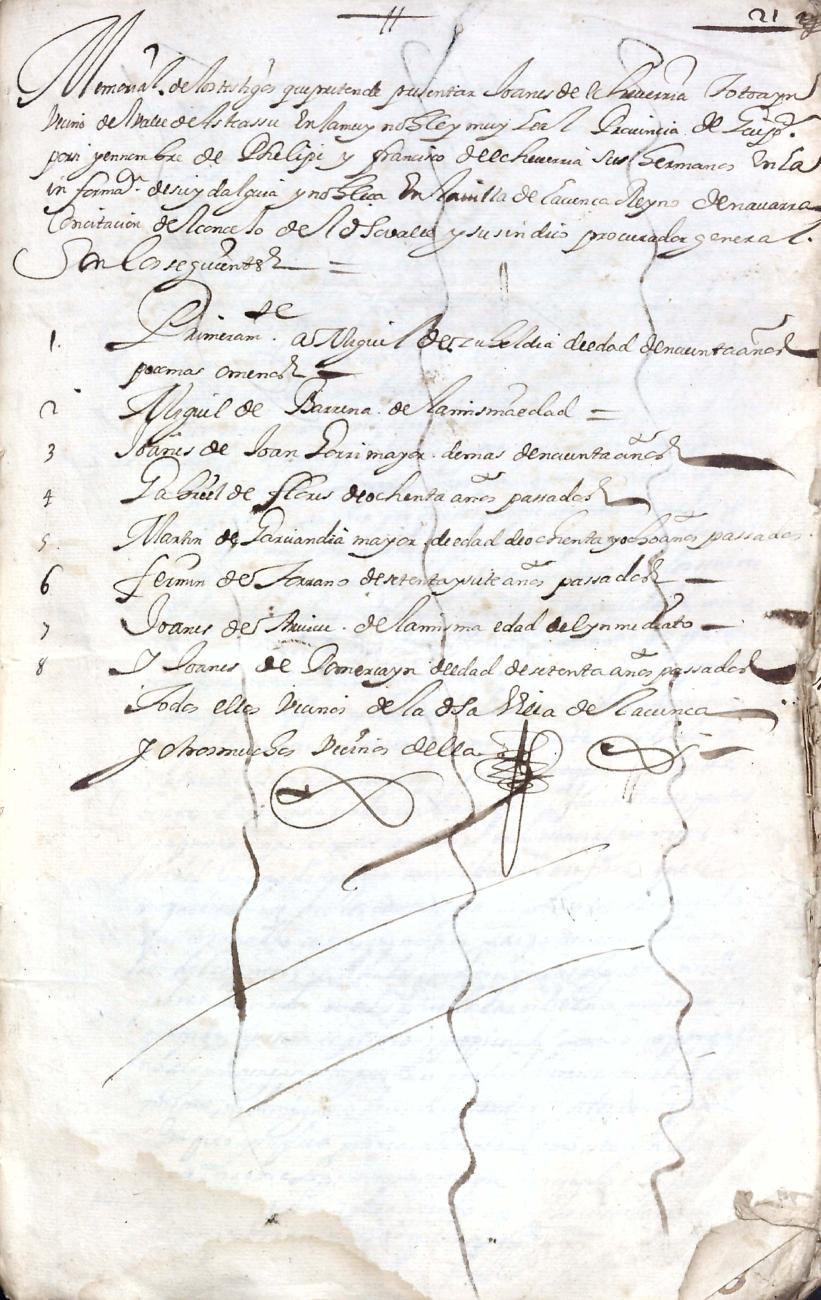 21
Memorial de los testigos que pretende presentar Joanes de Echeverria Totoayn
vecino de Valle de Asteassu En la muy noble y muy Leal Provincia de Guipª.
por si y en nombre de Phelipe y francisco de echeverria sus hermanos En La
informaon. de su ydalguia y nobleza En la villa de Lacunca Reyno de navarra
Con citacion del concejo de el dho valle y su sindico procurador general.
Son los seguientes
1. Primeramte. a Miguel de Çubeldia de edad de noventa años
poco mas o menos
2 Miguel de Barrena. de la misma edad
3 Joanes de Joan Gorri mayor. de mas de noventa años
4 Gabriel de flores de ochenta años passados
5. Martin de Garciandia mayor de edad de ochenta y ocho años passados.
6 fermin de Torrano de setenta y siete años passados
7 Joanes de. de la misma edad del ynmediato
8 Y Joanes de Gomercayn de edad de setenta años passados
Todos ellos vecinos de la dha Villa de Lacunca
Y otros muchos vecinos della